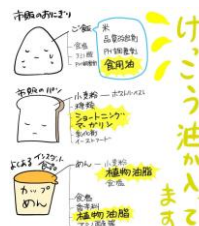 市販のおにぎり
ご飯
米
品質改良剤
PH調整剤
食用油
食塩
市販のパン
小麦粉
糖類
ショートニング
マーガリン
乳化剤
イーストフード
よくあるインスタント食品
カップ
めん
めん
小麦粉
植物油脂
食塩
食塩
香辛料
植物油脂
けっこう油が入って
ます